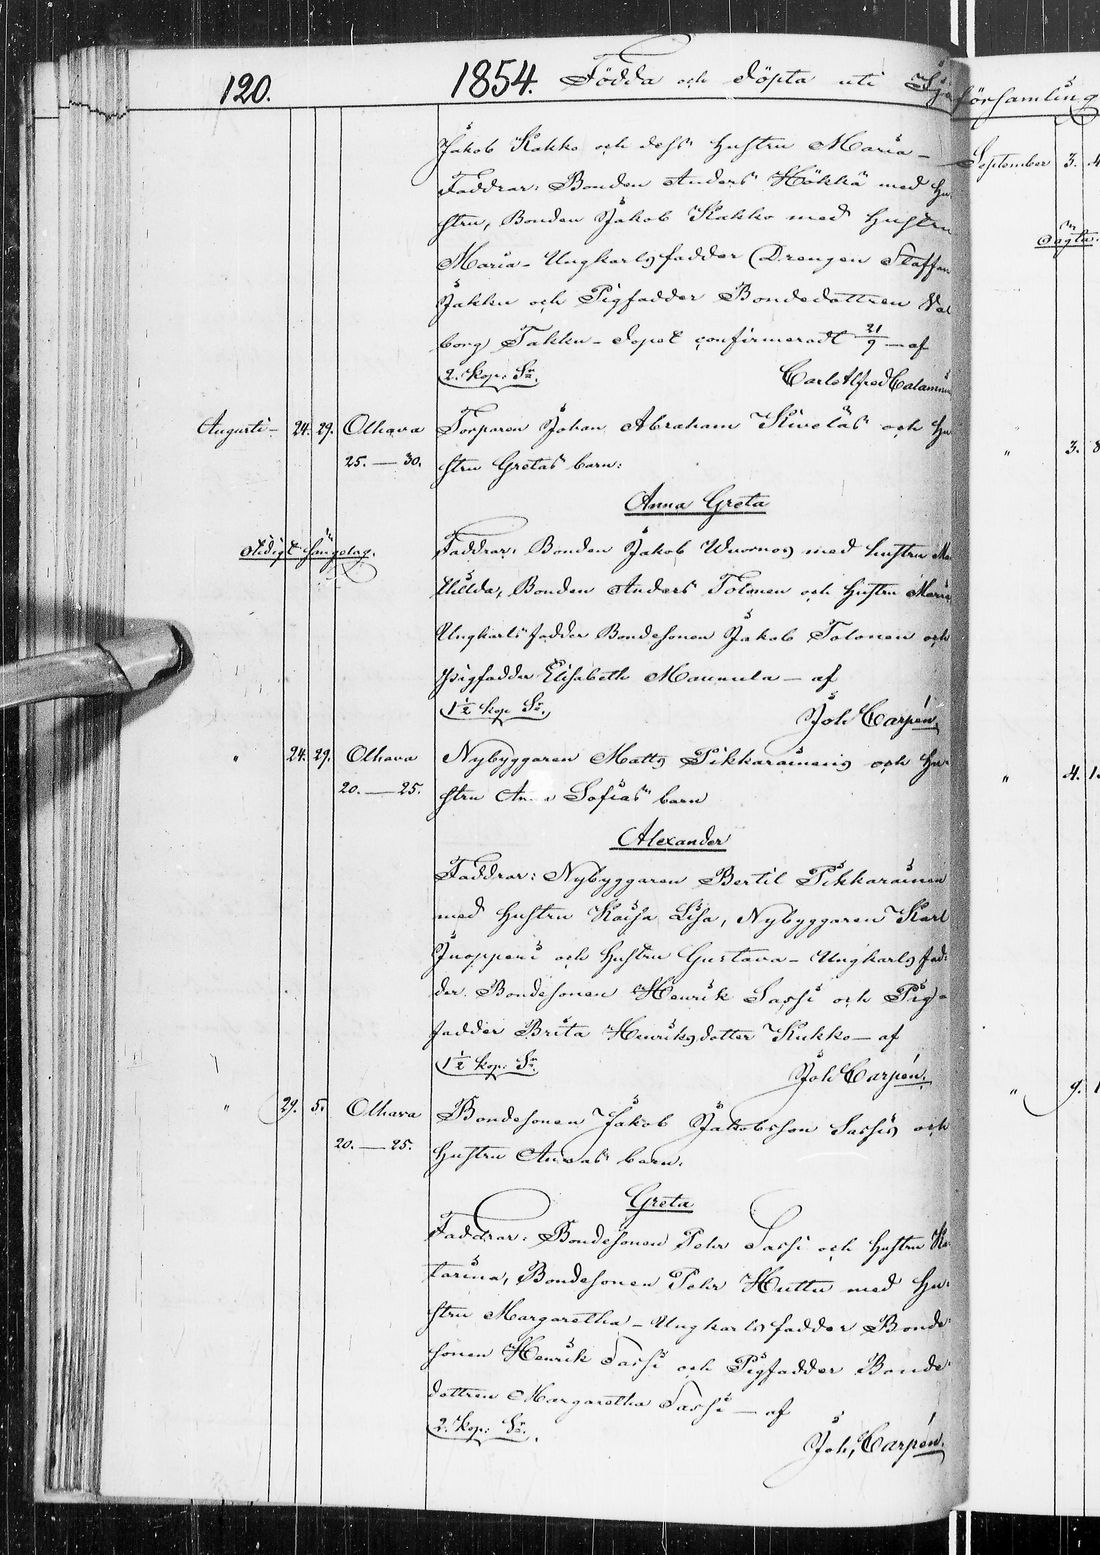 120. 1854. Födda och döpta uti Ijo församling
Jakob Kakko och dess hustru Maria –
Faddrar: Bonden Anders Hökkä med hu-
stru, Bonden Jakob Kakko med hustru
Maria – Ungkarlsfadder Drengen Staffan
Jakku och Pigfadder Bondedottren Val
borg Takku – Dopet confirmeradt 21/9 – af
2. kop: Sr. Carl Alfred Calamnius
Augusti – 24. 29. Olhava Torparen Johan Abraham Kiveläs och hu
25. — 30. stru Gretas barn:
Anna Greta
otidigt sängelag. Faddrar: Bonden Jakob Wuornos med hustru Ma
thilda, Bonden Anders Tolonen och hustru Maria
Ungkarlsfadder Bondesonen Jakob Tolonen och
Pigfadder Elisabeth Maunula – af
1½ kop Sr. Joh Carpén.
" 24. 29. Olhava Nybyggaren Matts Pikkarainens och hu-
20. — 25. stru Anna Sofias barn
Alexander
Faddrar: Nybyggaren Bertil Pikkarainen
med hustru Kaisa Lisa, Nybyggaren Karl
Juopperi och hustru Gustava – Ungkarlsfad-
der Bondesonen Henrik Sassi och Pig-
fadder Brita Henriksdotter Kukko – af
1½ kop: Sr. Joh Carpén.
" 29. 5. Olhava Bondesonen Jakob Jakobsson Sassis och
20. — 25. hustru Annas barn.
Greta
Faddrar: Bondesonen Pehr Sassi och hustru Ka
tarina, Bondesonen Pehr Huttu med hu-
stru Margaretha – Ungkarlsfadder Bonde-
sonen Henrik Sassi och Pigfadder Bonde-
dottren Margaretha Sassi – af
2. kop: Sr. Joh, Carpén.
September 3. 4
" 3. 8
" 4. 1
" 9. 1